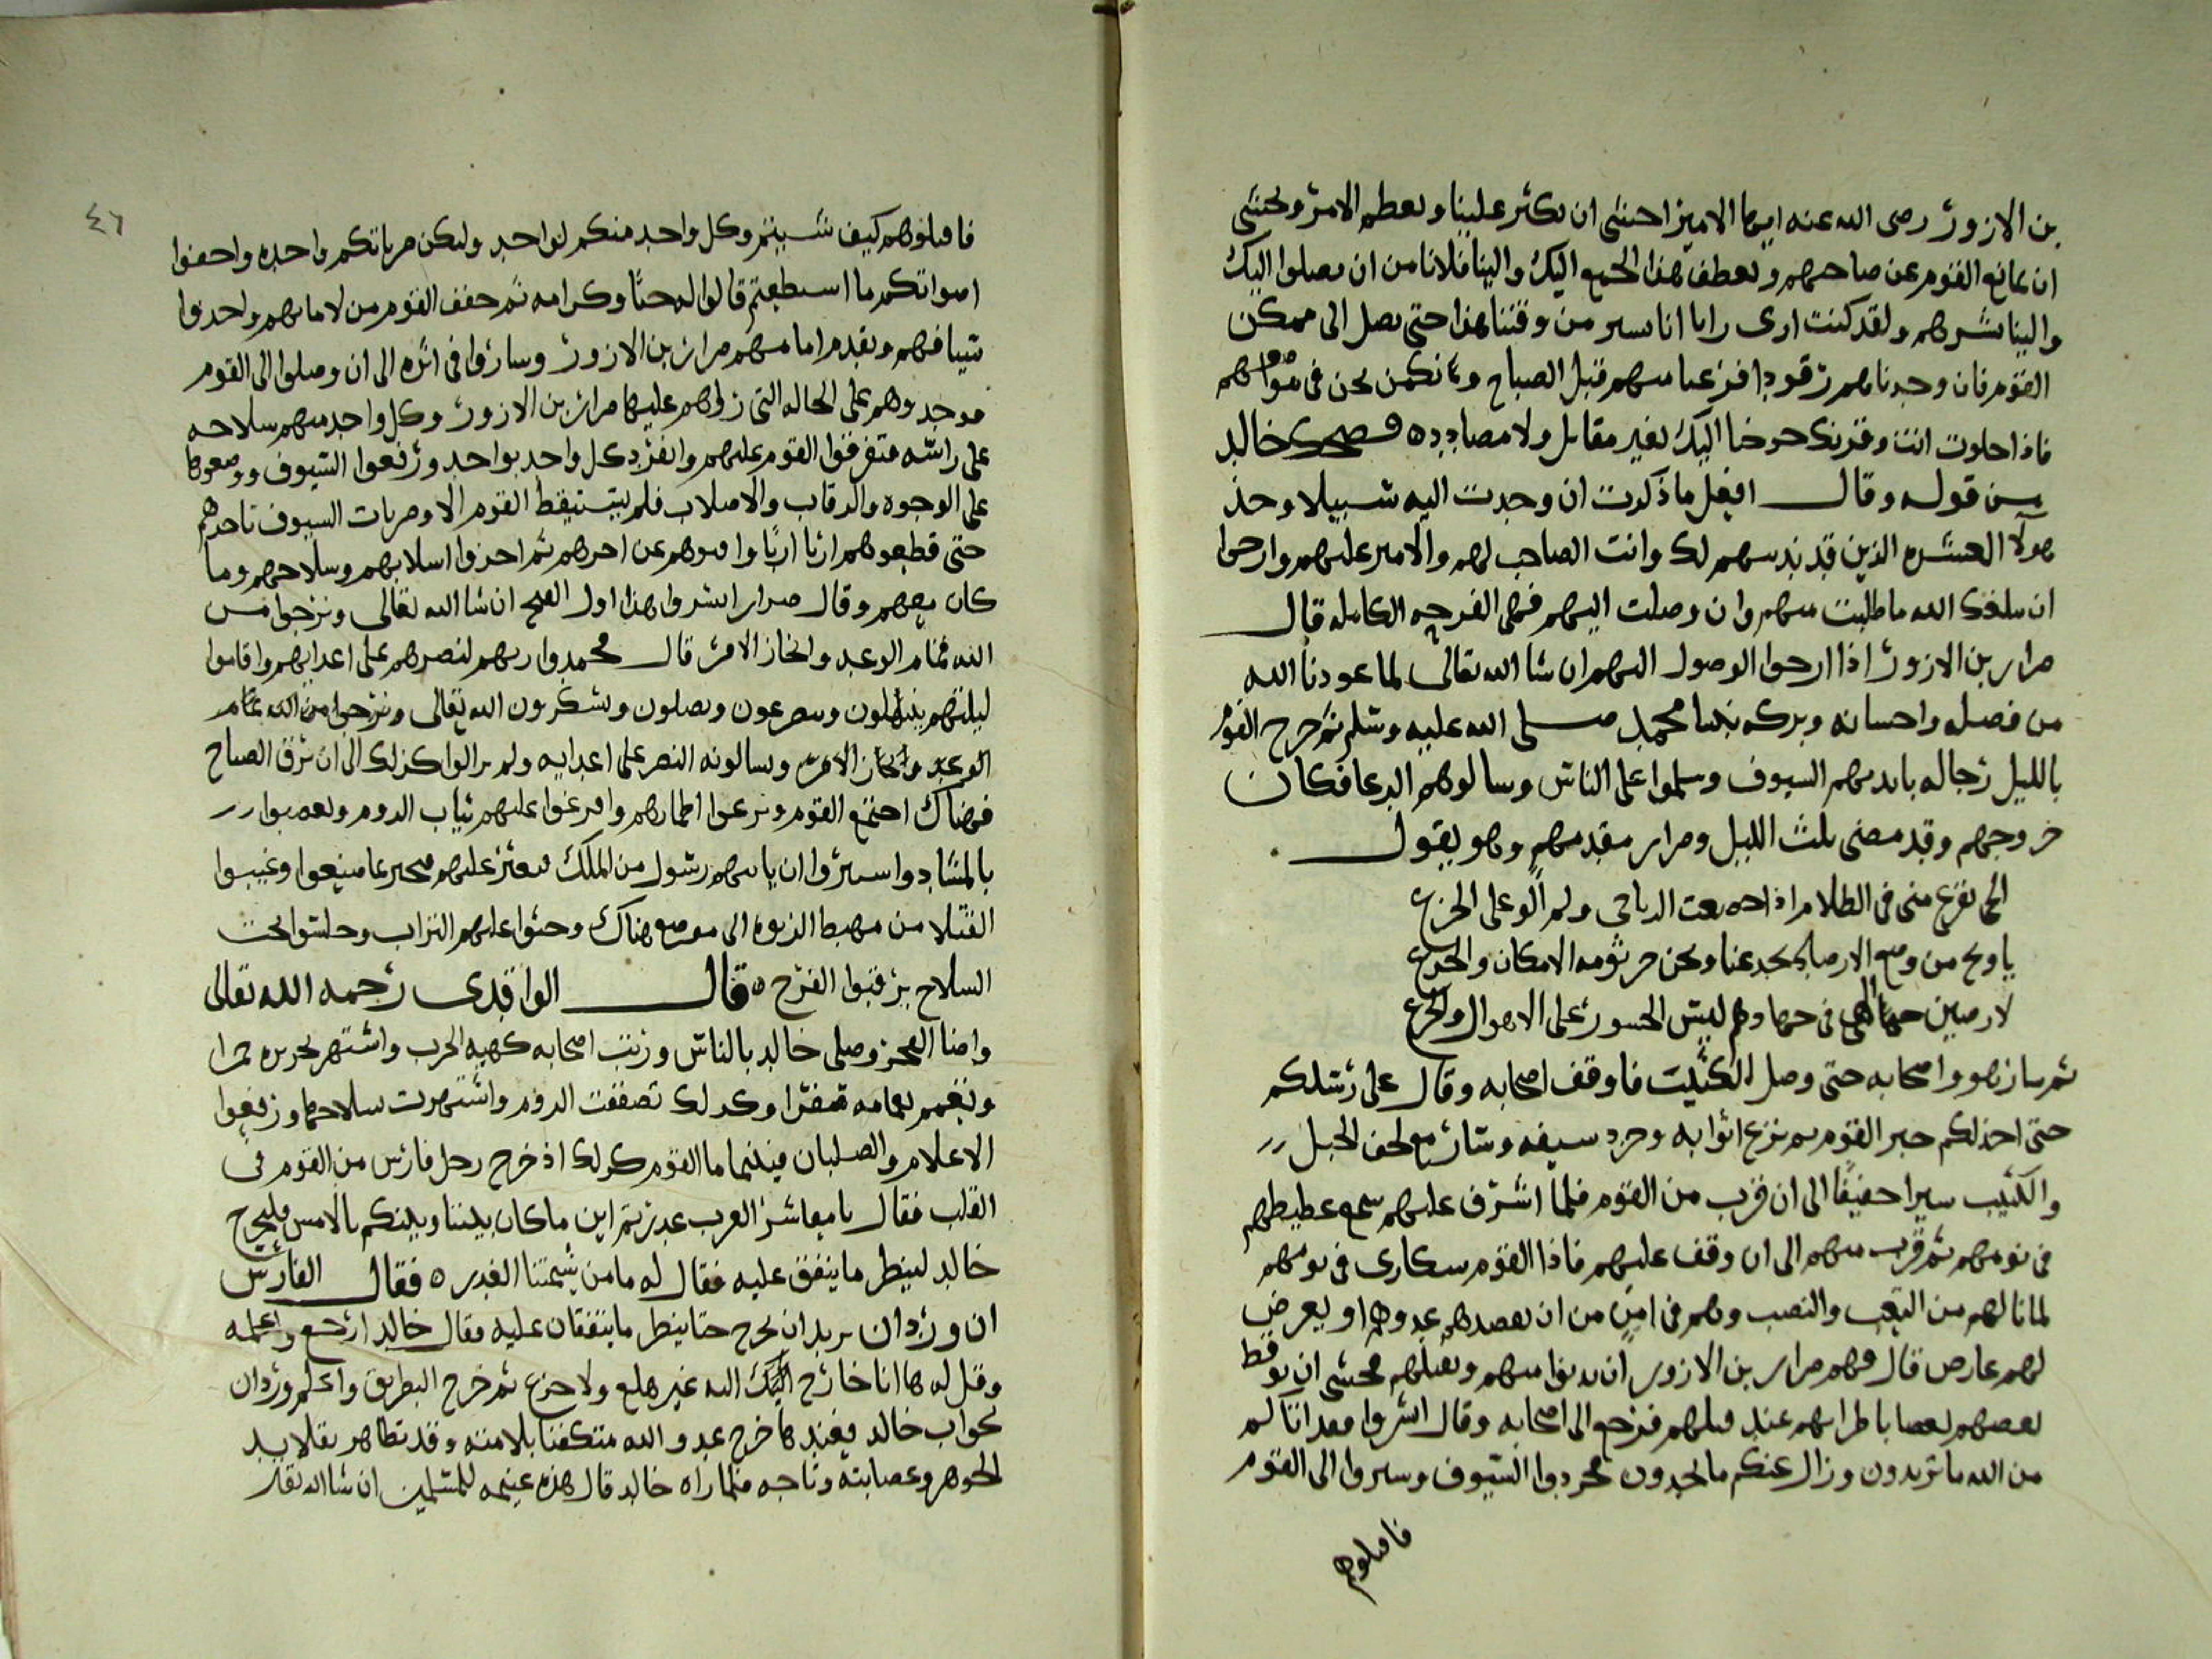 بن الازور رضى الله عنه ايها الامير اخشى ان يكثر علينا ويعظم الامر ونخشى
ان يمانع القوم عن صاحبهم ويعطف هذا الجمع اليك والينا فلا نامن ان يصلوا اليك
والينا بشرهم ولقد كنت ارى رايا انا نسير من وقتنا هذا حتى نصل الى ممكن
القوم فان وجدناهم رقودا فزعنا منهم قبل الصباح ونكمن نحن فى مواضعهم
فاذا خلوت انت وقرنك خرجنا اليك بغير مقاتل ولا مصادد ٥ فضحك خالد
من قوله وقال افعل ما ذكرت ان وجدت اليه سبيلا وخذ
هولآ العشره الذين قد ندبتهم لك وانت الصاحب لهم والامير عليهم وارجوا
ان يبلغك الله ما طلبت منهم وان وصلت اليهم فهى الفرجه الكامله قال
ضرار بن الازور اذا ارجوا الوصول اليهم ان شا الله تعالى لما عودنا الله
من فضله واحسانه وبركه نبينا محمد صلى الله عليه وسلم ثم خرج القوم
بالليل رجاله بايديهم السيوف وسلموا على الناس وسالوهم الدعا فكان
خروجهم وقد مضى ثلث الليل وضرار مقدمهم وهو يقول
الجن تفزع منى فى الظلام اذا الدياجى ولم الو على الجزع
يا ويح من وضع الارصاد يخدعنا ونحن جرثومه الامكان والخدع
لارضين الهى فى جهادهم ليس الجسور على الاهوال والجزع
ثم سار هو واصحابه حتى وصل الكثيب فاوقف اصحابه وقال على رسلكم
حتى اخذ لكم خبر القوم ثم نزع اثوابه وجرد سيفه وسار مع لحف الجبل
والكثيب سيرا خفيفًا الى ان قرب من القوم فلما اشرف عليهم سمع غطيطهم
فى نومهم ثم قرب منهم الى ان وقف عليهم فاذا القوم سكارى فى نومهم
لما نالهم من التعب والنصب وهم فى امن من ان يقصدهم عدوهم او يعرض
لهم عارض قال فهم ضرار بن الازور ان يدنوا منهم ويقتلهم فخشى ان يوقظ
بعضهم بعضا باضطرابهم عند قتلهم فرجع الى اصحابه وقال ابشروا فقد اتاكم
من الله ما تريدون وزال عنكم ما تحذرون فجردوا السيوف وسيروا الى القوم
فاقتلوهم
٤٦
فاقتلوهم كيف شييتم وكل واحد منكم لواحد ولتكن ضرباتكم واحده واخفوا
اصواتكم ما استطعتم قالوا له حبًا وكرامه ثم خفف القوم من لاماتهم واخذوا
سيافهم وتقدم امامهم ضرار بن الازور وساروا فى اثره الى ان وصلوا الى القوم
فوجدوهم على الحاله التى راهم عليها ضرار بن الازور وكل واحد منهم سلاحه
على راسه فتفرقوا القوم عليهم وانفرد كل واحد بواحد ورفعوا السيوف ووضعوها
على الوجوه والرقاب والاصلاب فلم يستيقظ القوم الا وضربات السيوف تاخذهم
حتى قطعوهم اربًا اربًا وافنوهم عن اخرهم ثم اخذوا اسلابهم وسلاحهم وما
كان معهم وقال ضرار ابشروا هذا اول الفتح ان شا الله تعالى ونرجوا من
الله تمام الوعد وانجاز الامر قال فحمدوا ربهم لنصرهم على اعدايهم واقاموا
ليلتهم يبتهلون ويتضرعون ويصلون ويشكرون الله تعالى ونرجوا من الله تمام
الوعد وانجاز الامر ويسالونه النصر على اعدايه ولم يزالوا كذلك الى ان برق الصباح
فهناك اجتمع القوم ونزعوا اطمارهم وافرغوا عليهم ثياب الروم وتعصبوا
بالمشادد واستتروا ان ياتيهم رسول من الملك فيعثر عليهم وغيبوا
القتلا من مهبط الربوه الى موضع هناك وحثوا عليهم التراب وجلسوا تحت
السلاح يرقبوا الفرج ٥ قال الواقدى رحمه الله تعالى
واضا الفجر وصلى خالد بالناس ورتب اصحابه كهيه الحرب واشتهر بحريره حمرا
وتعمم بعمامه صفرا وكذلك تصففت الروم واشتهرت سلاحها ورفعوا
الاعلام والصلبان فبينما القوم كذلك اذ خرج رجل فارس من القوم فى
القلب فقال يا معاشر العرب غدرتم اين ما كان بيننا وبينكم بالامس فليخرج
خالد لينظر ما يتفق عليه فقال له ما من شيمتنا الغدر ٥ فقال الفارس
ان وردان يريد ان تخرج حتا ينظر ما يتفقان عليه فقال خالد ارجع واعلمه
وقل له ها انا خارج اليك اليه غير هلع ولا جزع ثم خرج البطريق واعلم وردان
بجواب خالد فعندها خرج عدو الله متكفنا بلامته وقد تظاهر بقلايد
الجوهر وعصابته وتاجه فلما راه خالد قال هذه غنيمه للمسلمين ان شا الله تعا